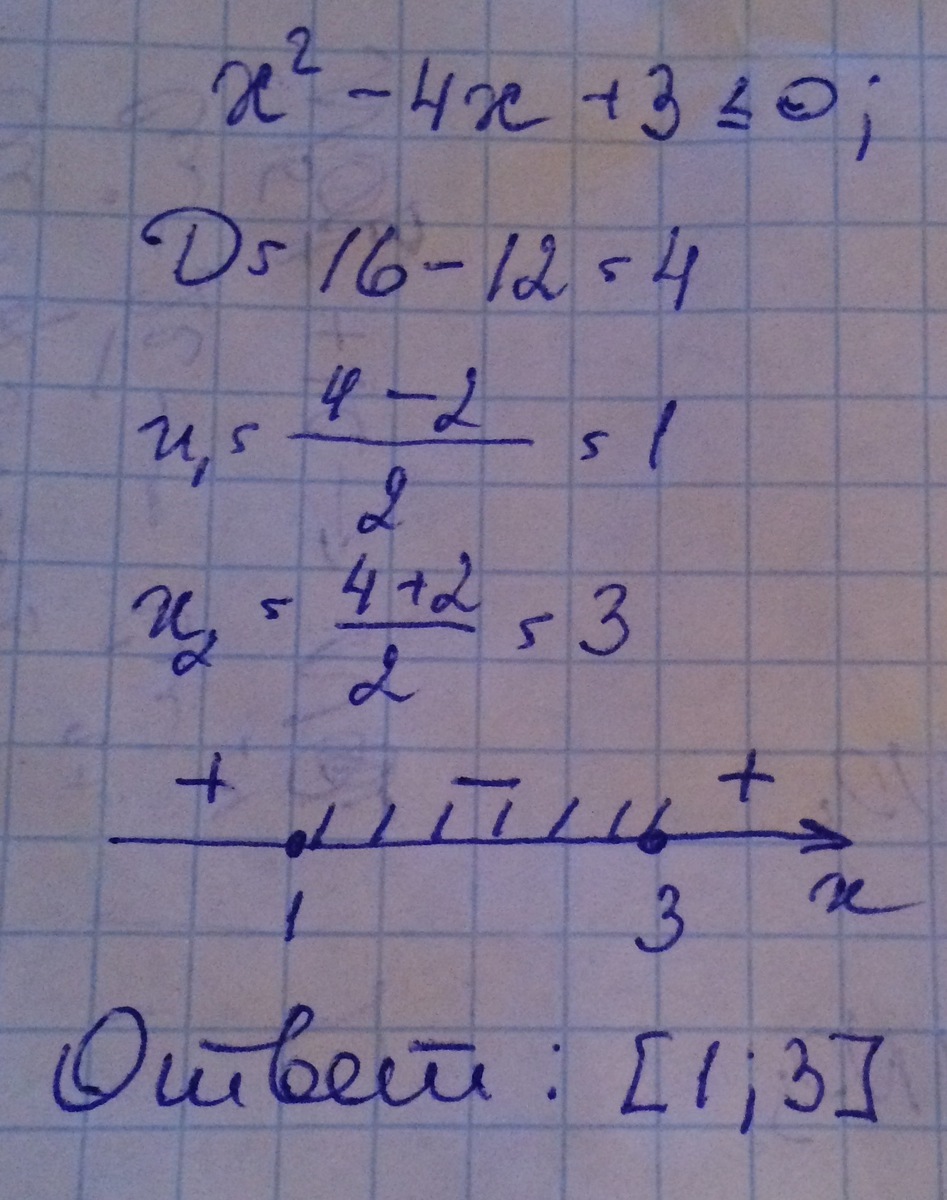 x² - 4x + 3 ≤ 0;
D = 16 - 12 = 4
x₁ = (4 - 2)/2 = 1
x₂ = (4 + 2)/2 = 3
+ − +
1 3 x
Ответ: [1; 3]